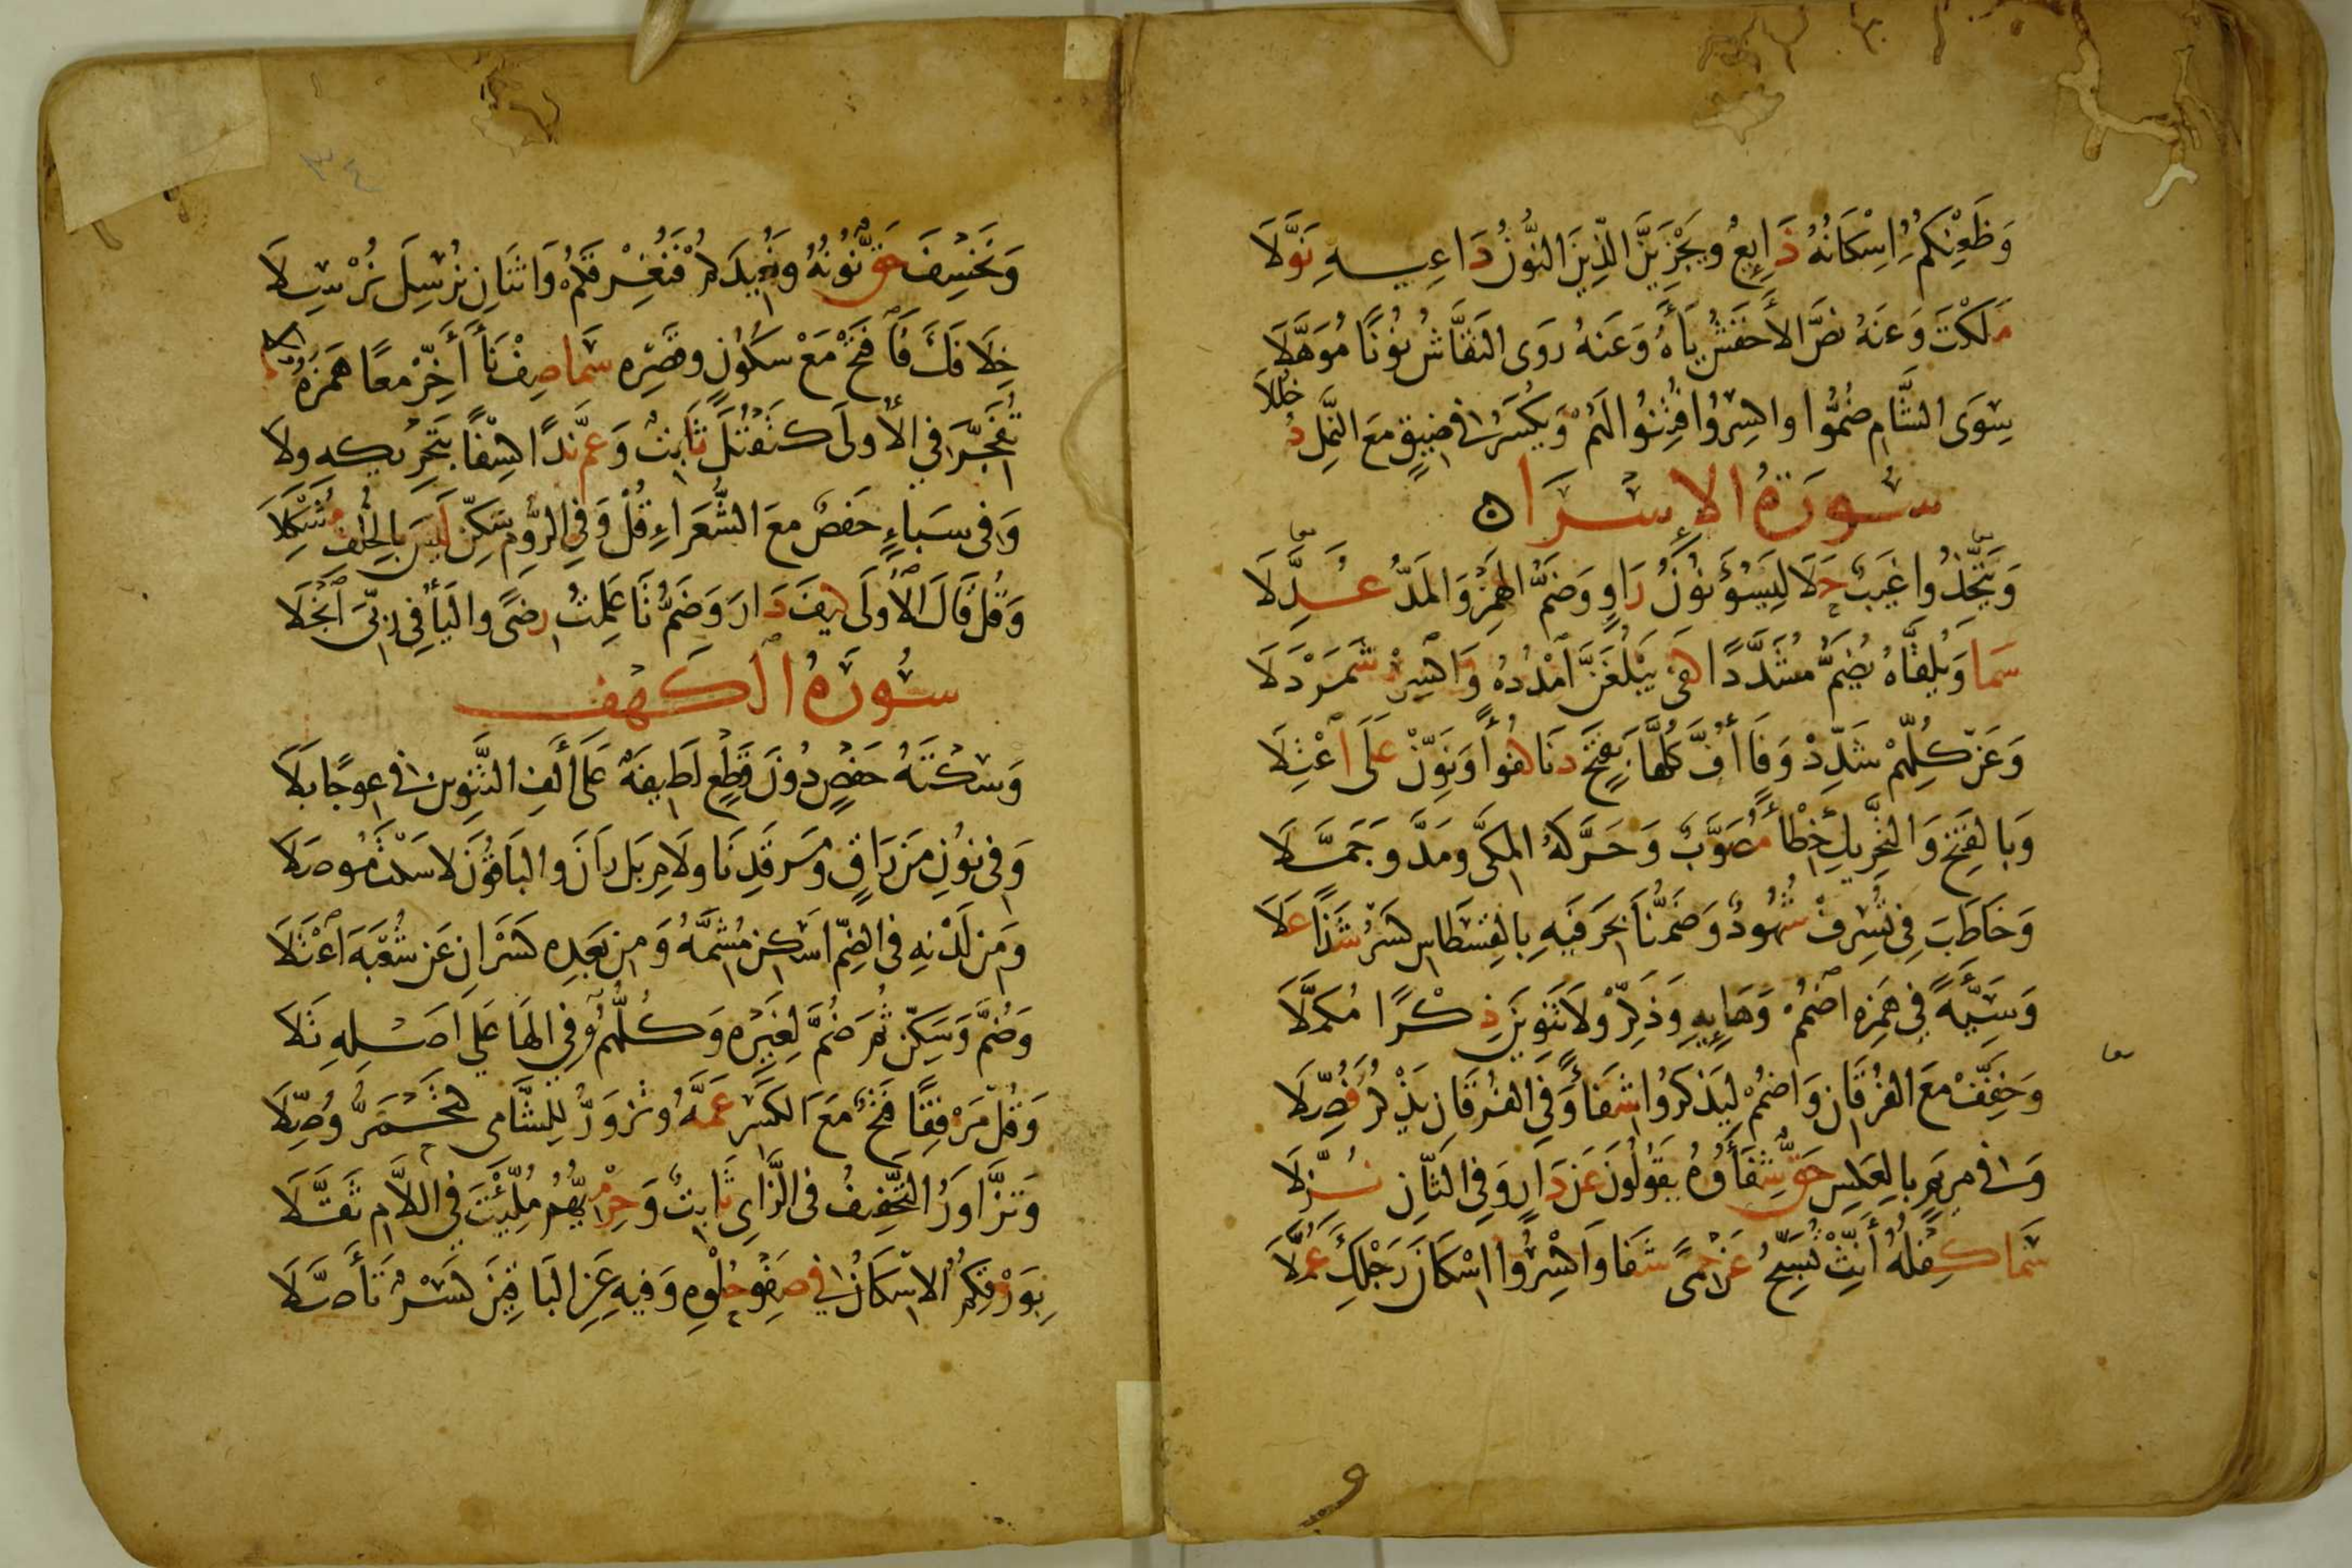 وَظَعْنِكُمُ اِسْكَانُهُ ذَايِعٌ ويَجْزِيَنَّ الَّذِينَ النُّونُ دَاعِيهِ نَوَّلَا
مَلَكْتَ وَعَنْهُ نَصَّ الأَخْفَشُ يَاءَهُ وَعَنهُ رَوَى النَقَّاشُ نُونًا مُوَهَّلَا
سِوَى الشَّامِ ضُمُّوا واكسِرُوا فَتِنُوا لَهُمْ وَيُكْسَرُ فِي ضَيْقٍ مَعَ النَّمْلِ دُخْلُلَا
سُورَةُ الإِسْرَا
وَيَتَّخِذُوا غَيبٌ حَلَا لِيَسُوْءَ نُونُ رَاوٍ وَضَمُّ الهَمْزِ وَالمَدُّ عُدِّلَا
سَمَا وَيُلَقَّاهُ يُضَمُّ مُشَدَّدًا كَفَى يَبْلُغَنَّ امْدُدْهُ وَاكْسِرْ شَمَرْدَلَا
وَعَنْ كُلِّهِمْ شَدِّدْ وَفَا أُفِّ كُلِّهَا بِفَتْحٍ دَنَا كُفْوًا وَنَوِّنْ عَلَى اعْتِلَا
وَبِالفَتْحِ وَالتَّحْرِيكِ خِطْأً مُصَوَّبٌ وَحَرَّكَهُ المَكِّي ومَدَّ وَجَمَّلَا
وَخَاطَبَ فِي تُسْرِفْ شُهُودٌ وَضَمُّنَا بِحَرفَيهِ بِالقِسْطَاسِ كَسْرُ شَذًا عَلَا
وَسَيِّئَةً فِي هَمْزِهِ اضْمُمْ وَهَايِهِ وَذَكِّرْ وَلَا تَنْوِينَ ذِكْرًا مُكَمَّلَا
وَخَفِّفْ مَعَ الفُرْقَانِ وَاضْمُمْ لِيَذْكُرُوا شِفَاءً وَفِي الفُرْقَانِ يَذْكُرُ فُصِّلَا
وَفي مَرْيَمٍ بِالعَكْسِ حَقٌّ شِفَاؤُهُ يَقُولُونَ عَنْ دَارٍ وَفِي الثَّانِ نُزِّلَا
سَمَا كِفْلُهُ أَنِّثْ تُسَبِّحُ عَنْ حِمًى شَفَا وَاكْسِرُوا اسْكَانَ رَجْلِكَ عُمَّلَا
٣٤
وَنَخْسِفَ حَقٌّ نُونُهُ وَنُعِيدَكُمْ فَنُغْرِقَكُمْ وَاثْنَانِ نُرْسِلَ نُرْسِلَا
خِلَافَكَ فَافْتَحْ مَعْ سُكُونٍ وقَصْرِهِ سَمَا صِفْ نَأَى أَخِّرْ مَعًا هَمْزَهُ مُلَا
تُفَجِّرَ فِي الأُولَى كَتَقْتُلَ ثَابِتٌ وَعَمَّ نَدًا كِسْفًا بِتَحْرِيكِهِ وِلَا
وَفِي سَبَاءٍ حَفصٌ مَعَ الشُّعَرَاءِ قُلْ وَفِي الرُّومِ سَكِّنْ لَيْسَ بِالخُلْفِ مُشْكِلَا
وَقُلْ قَالَ الأُولَى كَيفَ دَارَ وَضَمُّ تَا عَلِمْتُ رِضًى وَاليَاءُ فِي رَبِّيَ انْجَلَا
سُورَةُ الكَهْفِ
وَسَكْتَةُ حَفْصٍ دُونَ قَطْعٍ لَطِيفَةٌ عَلَى أَلِفِ التَّنْوِينِ فِي عِوَجًا بَلَا
وَفِي نُونِ مَنْ رَاقٍ وَمَرْقَدِنَا وَلَامِ بَلْ رَانَ والبَاقُونَ لا سَكْتَ مُوصَلَا
وَمِنْ لَدْنِهِ فِي الضَّمِّ اسْكِنْ مُشِمَّهُ وَمِنْ بَعْدِهِ كَسْرَانِ عَنْ شُعْبَةَ اعْتَلَا
وَضُمَّ وَسَكِّنْ ثُمَّ ضُمَّ لِغَيْرِهِ وَكُلُّهُمُ فِي الهَا عَلَى اصْلِهِ تَلَا
وَقُلْ مَرْفِقًا فَتْحٌ مَعَ الكَسْرِ عَمَّهُ وتَزْوَرُّ لِلشَّامِي كَتَحْمَرُّ وُصِّلَا
وَتَزَّاوَرُ التَّخْفِيفُ في الزَّايِ ثَابِتٌ وَحِرْمِيُّهُمْ مُلِّئْتَ فِي اللَّامِ ثَقَّلَا
بِوَرْقِكُمُ الاسْكَانُ فِي صَفْوِ حُلْوِهِ وَفِيهِ عَنِ البَاقِينَ كَسْرٌ تَأَصَّلَا